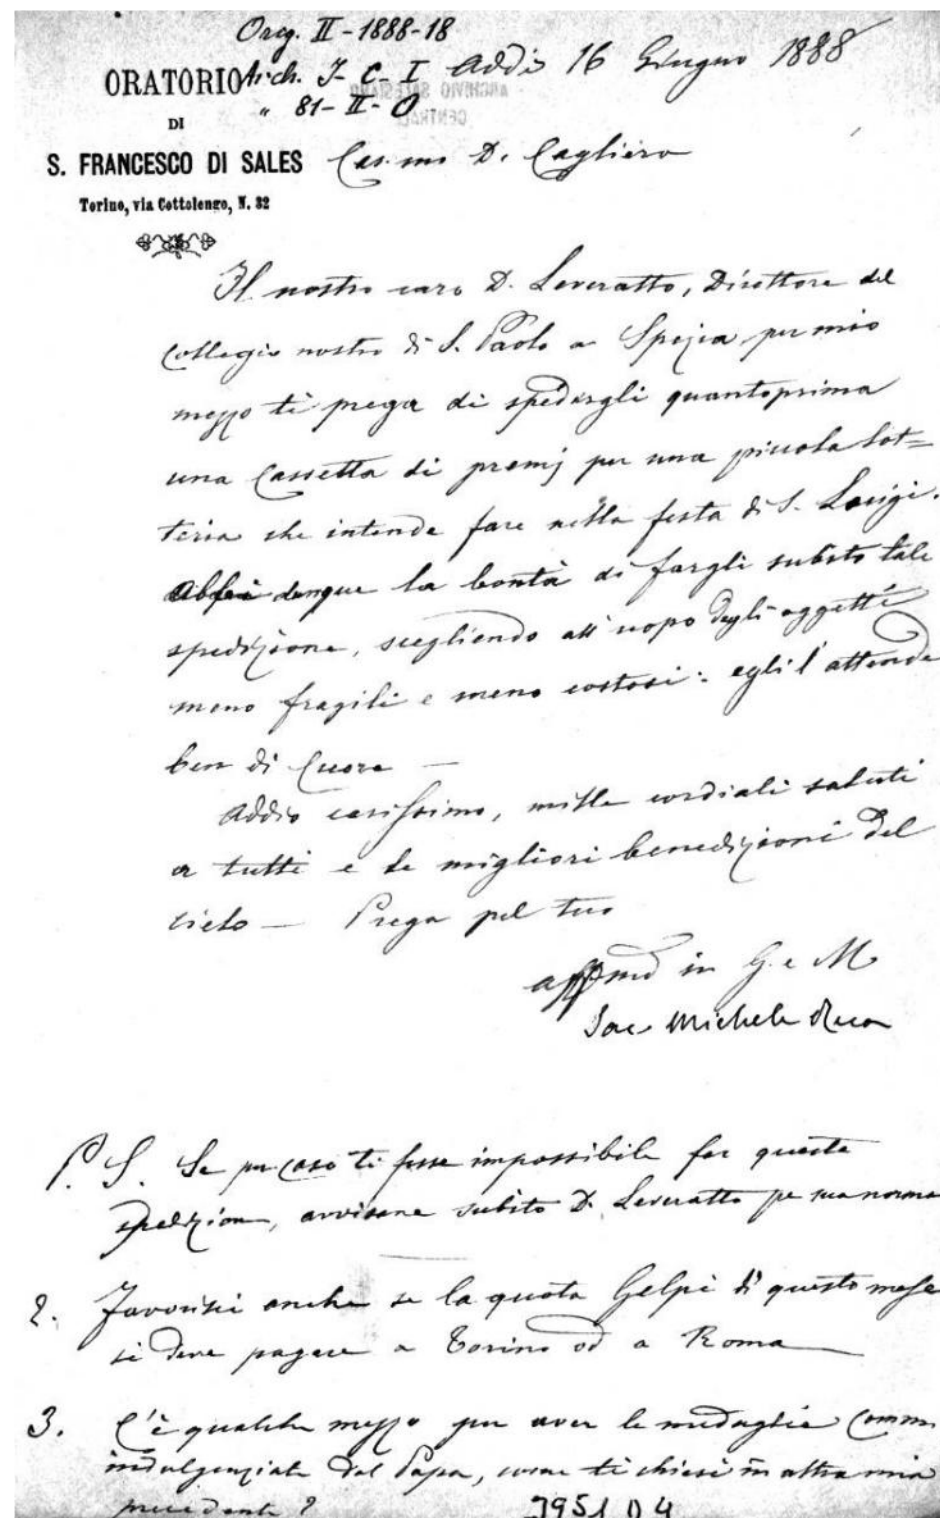 Org. II - 1888-18
Arch. I - C - I Addì 16 Giugno 1888
" 81 - II - O
ARCHIVIO SALESIANO
CENTRALE
ORATORIO
DI
S. FRANCESCO DI SALES
Torino, via Cottolengo, N. 32
Car.mo D. Cagliero
Il nostro caro D. Leveratto, Direttore del
Collegio nostro di S. Paolo a Spezia per mio
mezzo ti prega di spedirgli quantoprima
una Cassetta di premj per una piccola lot=
teria che intende fare nella festa di S. Luigi.
Abbi dunque la bontà di fargli subito tale
spedizione, scegliendo all'uopo degli oggetti
meno fragili e meno costosi: egli l'attende
ben di Cuore —
Addio carissimo, mille cordiali saluti
a tutti e le migliori benedizioni del
cielo — Prega pel tuo
aff.mo in G. e M.
Sac. Michele Rua
P. S. Se per caso ti fosse impossibile far questa
spedizione, avvisane subito D. Leveratto per sua norma
2. Favorisci anche se la quota Gelpi di questo mese
si deve pagare a Torino od a Roma
3. C'è qualche mezzo per aver le medaglie
indulgenziate dal Papa, come ti chiesi in altra mia
precedente?
3951 D 4